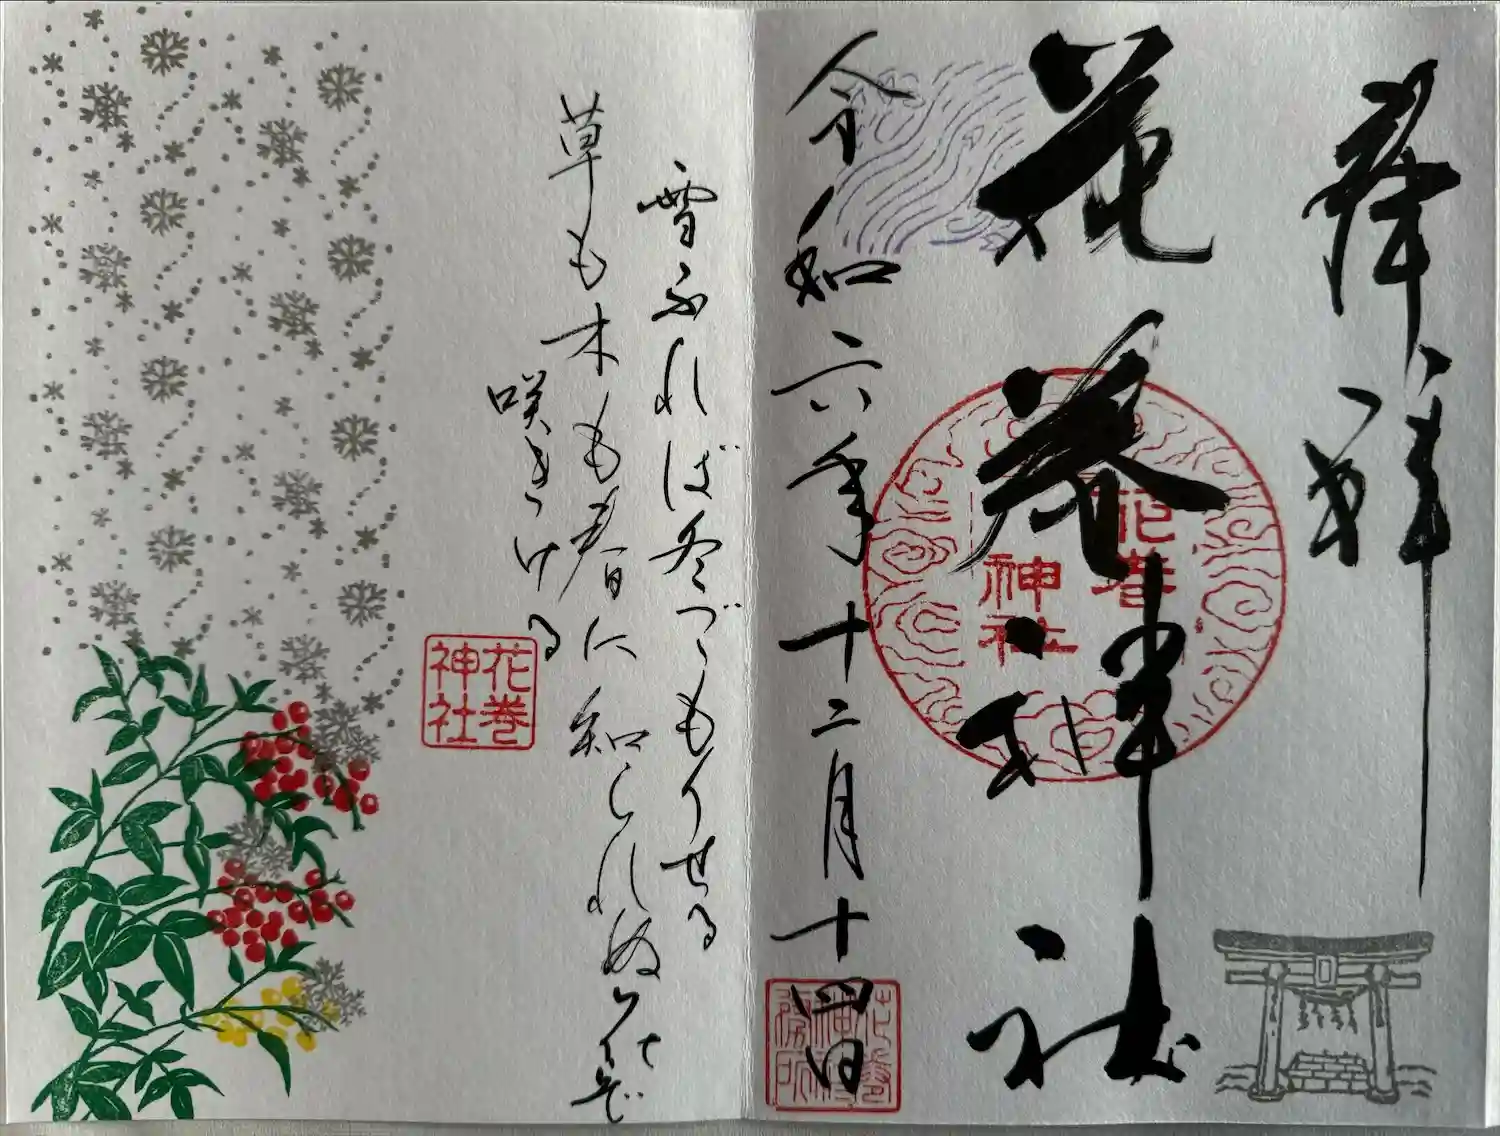 奉拝
花巻神社
花巻
神社
令和六年十二月十四日
花巻
神社
務所
雪ふれば冬ごもりせる
草も木も春に知られぬ花ぞ
咲きける
花巻
神社